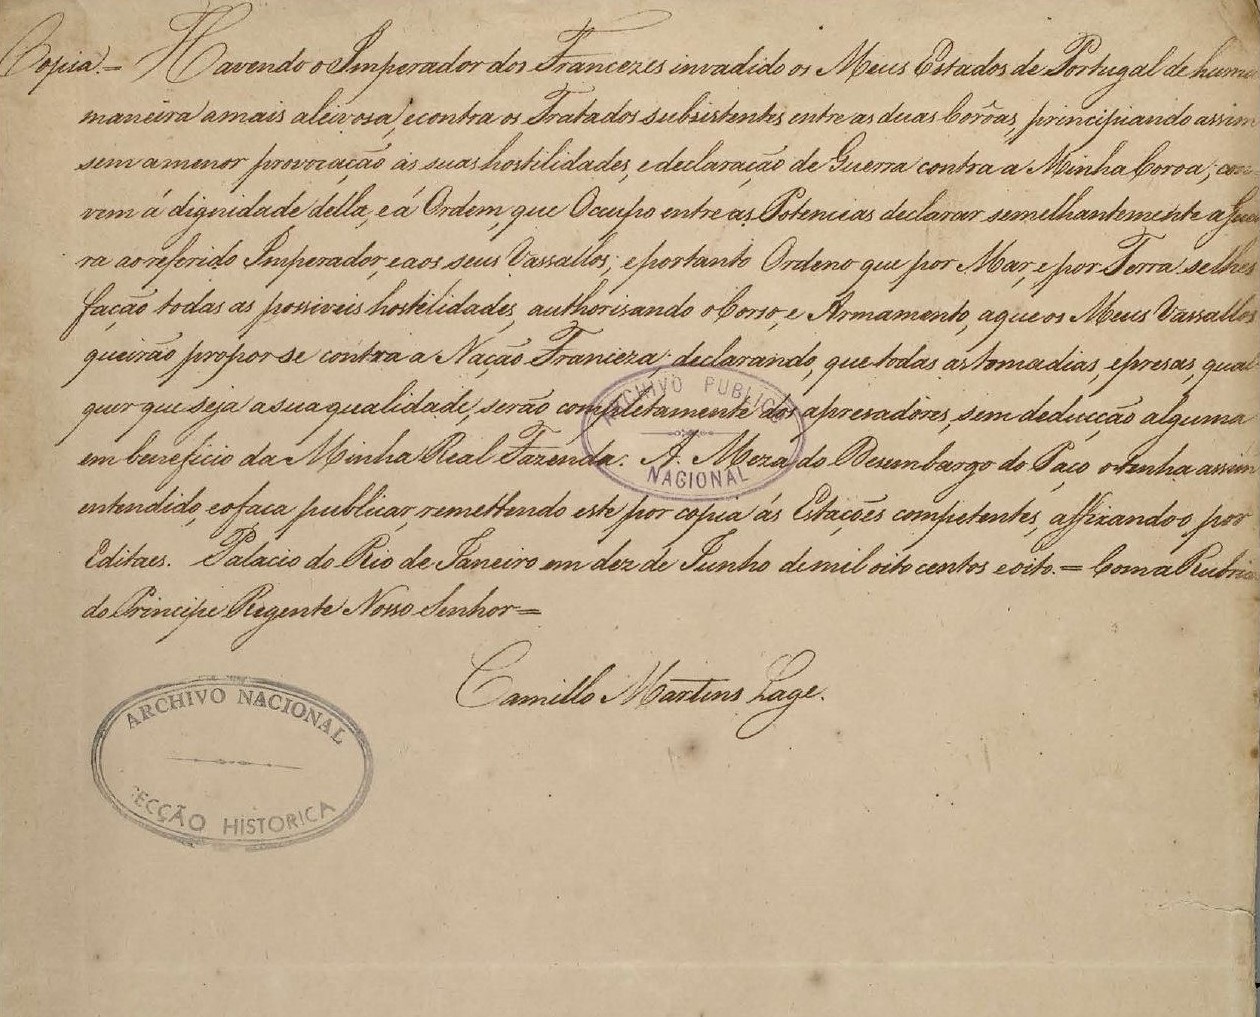 Copia. = Havendo o Imperador dos Francezes invadido os Meus Estados de Portugal de huma
maneira a mais aleivosa, e contra os Tratados subsistentes entre as duas Corôas, principiando assim
sem a menor provocação as suas hostilidades, e declaração de Guerra contra a Minha Coroa; con-
vem á dignidade della, e á Ordem, que Occupo entre as Potencias declarar semelhantemente a Guer-
ra ao referido Imperador, e aos seus Vassallos; e portanto Ordeno que por Mar, e por Terra se lhes
fação todas as possiveis hostilidades, authorisando o Corso, e Armamento, a que os Meus Vassallos
queirão propor-se contra a Nação Franceza; declarando, que todas as tomadias, e presas, qual-
quer que seja a sua qualidade, serão completamente dos apresadores, sem deducção alguma
em beneficio da Minha Real Fazenda. A Meza do Desembargo do Paço o tenha assim
entendido, e o faça publicar remettendo este por copia ás Estações competentes, affixando-o por
Editaes. Palacio do Rio de Janeiro em dez de Junho de mil oito centos e oito. = Com a Rubrica
do Principe Regente Nosso Senhor =
Camillo Martins Lage.
ARCHIVO PUBLICO
NACIONAL
ARCHIVO NACIONAL
SECÇÃO HISTORICA